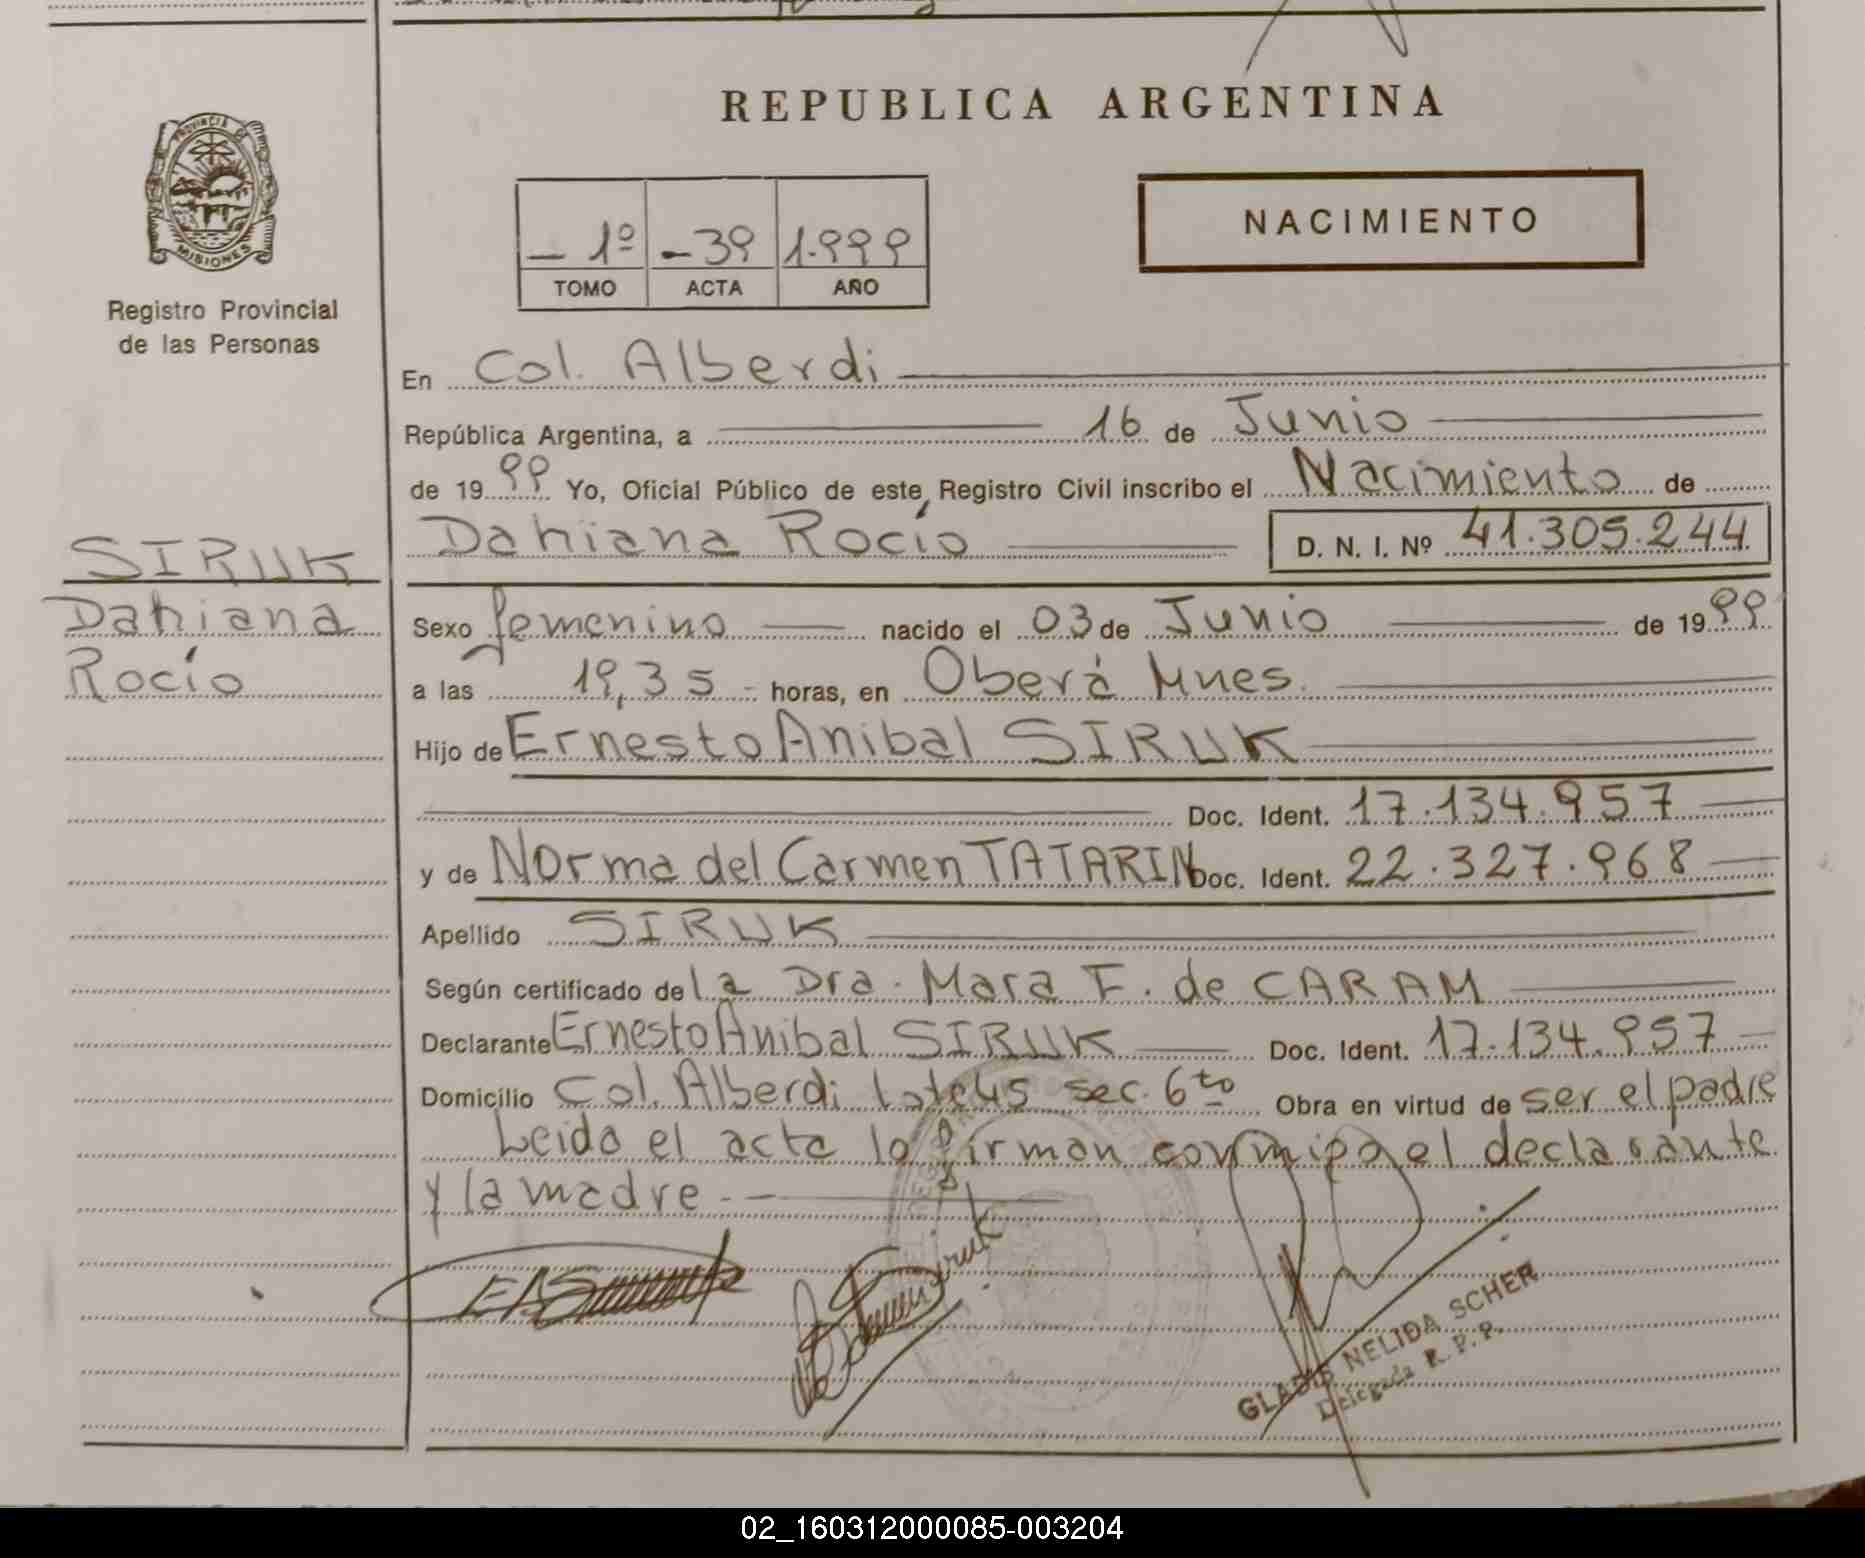 REPUBLICA ARGENTINA
PROVINCIA DE MISIONES
Registro Provincial
de las Personas
- 1º -39 1.999
TOMO ACTA AÑO
NACIMIENTO
En Col. Alberdi
República Argentina, a 16 de Junio
de 1999 Yo, Oficial Público de este Registro Civil inscribo el Nacimiento de
Dahiana Rocío D. N. I. Nº 41.305.244
SIRUK
Dahiana
Rocío
Sexo femenino nacido el 03 de Junio de 1999
a las 19,35 - horas, en Oberá Mnes.
Hijo de Ernesto Anibal SIRUK
Doc. Ident. 17.134.957
y de Norma del Carmen TATARIN Doc. Ident. 22.327.968
Apellido SIRUK
Según certificado de la Dra. Mara F. de CARAM
Declarante Ernesto Anibal SIRUK Doc. Ident. 17.134.957
Domicilio Col. Alberdi sec. 6to Obra en virtud de ser el padre
Leido el acta la firman conmigo el declarante
y la madre. -
GLADIS NELIDA SCHER
Delegada R. P. P.
02_160312000085-003204